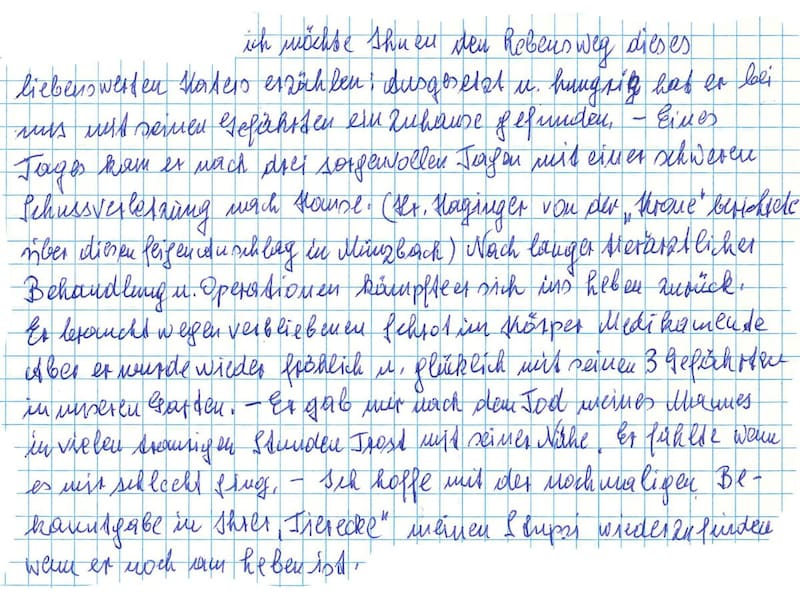 ich möchte Ihnen den Lebensweg dieses
liebenswerten Katers erzählen: Ausgesetzt u. hungrig hat er bei
uns mit seinen Gefährten ein Zuhause gefunden. – Eines
Tages kam er nach drei sorgenvollen Tagen mit einer schweren
Schussverletzung nach Hause. (Hr. Haginger von der „Krone" berichtete
über diesen feigen Anschlag in Münzbach) Nach langer tierärztlicher
Behandlung u. Operationen kämpfte er sich ins Leben zurück.
Er braucht wegen verbliebenen Schrot im Körper Medikamente
Aber er wurde wieder fröhlich u. glücklich mit seinen 3 Gefährten
in unseren Garten. – Er gab mir nach dem Tod meines Mannes
in vielen traurigen Stunden Trost mit seiner Nähe. Er fühlte wenn
es mir schlecht ging. – Ich hoffe mit der nochmaligen Be-
kanntgabe in Ihrer „Tierecke" meinen Stupsi wiederzufinden
wenn er noch am Leben ist.